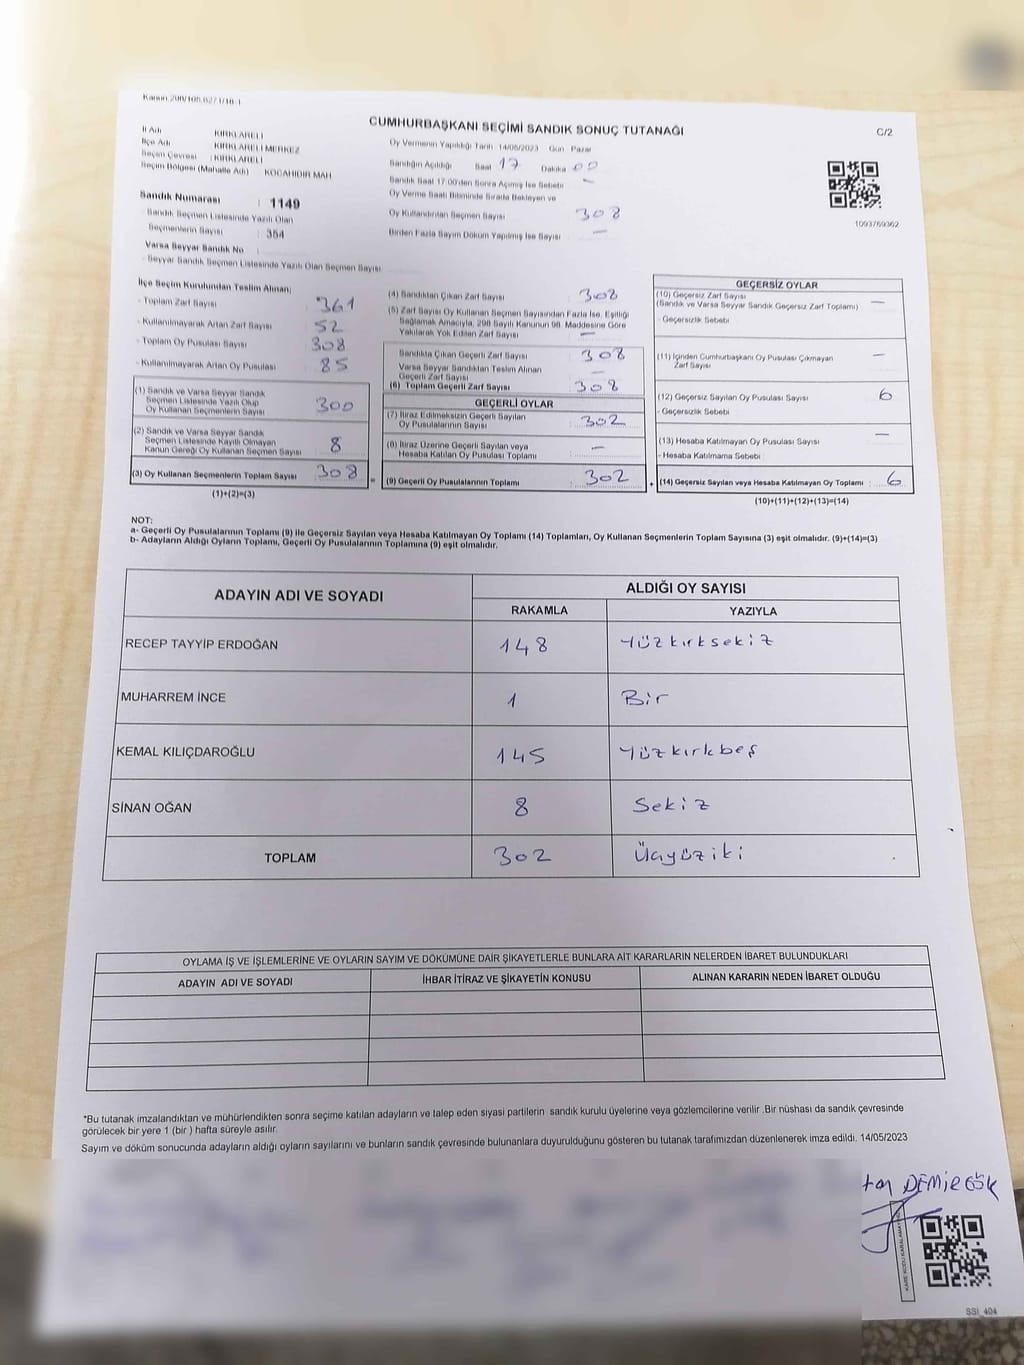 Kanun:298/105,6271/18-1
CUMHURBAŞKANI SEÇİMİ SANDIK SONUÇ TUTANAĞI
C/2
İl Adı : KIRKLARELİ
İlçe Adı : KIRKLARELİ MERKEZ
Seçim Çevresi : KIRKLARELİ
Seçim Bölgesi (Mahalle Adı) KOCAHIDIR MAH
Sandık Numarası : 1149
- Sandık Seçmen Listesinde Yazılı Olan
Seçmenlerin Sayısı : 354
Varsa Seyyar Sandık No :
- Seyyar Sandık Seçmen Listesinde Yazılı Olan Seçmen Sayısı
Oy Vermenin Yapıldığı Tarih 14/05/2023 Gün Pazar
Sandığın Açıldığı Saat 17 Dakika 00
Sandık Saat 17:00'den Sonra Açılmış İse Sebebi -
Oy Verme Saati Bitiminde Sırada Bekleyen ve
Oy Kullandırılan Seçmen Sayısı 308
Birden Fazla Sayım Döküm Yapılmış İse Sayısı -
1093769362
İlçe Seçim Kurulundan Teslim Alınan;
- Toplam Zarf Sayısı 361
- Kullanılmayarak Artan Zarf Sayısı 52
- Toplam Oy Pusulası Sayısı 308
- Kullanılmayarak Artan Oy Pusulası 85
(1) Sandık ve Varsa Seyyar Sandık
Seçmen Listesinde Yazılı Olup
Oy Kullanan Seçmenlerin Sayısı 300
(2) Sandık ve Varsa Seyyar Sandık
Seçmen Listesinde Kayıtlı Olmayan
Kanun Gereği Oy Kullanan Seçmen Sayısı 8
(3) Oy Kullanan Seçmenlerin Toplam Sayısı 308
(1)+(2)=(3)
(4) Sandıktan Çıkan Zarf Sayısı 308
(5) Zarf Sayısı Oy Kullanan Seçmen Sayısından Fazla İse, Eşitliği
Sağlamak Amacıyla, 298 Sayılı Kanunun 98. Maddesine Göre
Yakılarak Yok Edilen Zarf Sayısı -
Sandıkta Çıkan Geçerli Zarf Sayısı 308
Varsa Seyyar Sandıktan Teslim Alınan
Geçerli Zarf Sayısı -
(6) Toplam Geçerli Zarf Sayısı 308
GEÇERLİ OYLAR
(7) İtiraz Edilmeksizin Geçerli Sayılan
Oy Pusulalarının Sayısı 302
(8) İtiraz Üzerine Geçerli Sayılan veya
Hesaba Katılan Oy Pusulası Toplamı -
= (9) Geçerli Oy Pusulalarının Toplamı 302
GEÇERSİZ OYLAR
(10) Geçersiz Zarf Sayısı -
(Sandık ve Varsa Seyyar Sandık Geçersiz Zarf Toplamı)
- Geçersizlik Sebebi
(11) İçinden Cumhurbaşkanı Oy Pusulası Çıkmayan -
Zarf Sayısı
(12) Geçersiz Sayılan Oy Pusulası Sayısı 6
- Geçersizlik Sebebi
(13) Hesaba Katılmayan Oy Pusulası Sayısı -
- Hesaba Katılmama Sebebi
+ (14) Geçersiz Sayılan veya Hesaba Katılmayan Oy Toplamı : 6
(10)+(11)+(12)+(13)=(14)
NOT:
a- Geçerli Oy Pusulalarının Toplamı (9) ile Geçersiz Sayılan veya Hesaba Katılmayan Oy Toplamı (14) Toplamları, Oy Kullanan Seçmenlerin Toplam Sayısına (3) eşit olmalıdır. (9)+(14)=(3)
b- Adayların Aldığı Oyların Toplamı, Geçerli Oy Pusulalarının Toplamına (9) eşit olmalıdır.
ADAYIN ADI VE SOYADI ALDIĞI OY SAYISI
RAKAMLA YAZIYLA
RECEP TAYYİP ERDOĞAN 148 Yüzkırksekiz
MUHARREM İNCE 1 Bir
KEMAL KILIÇDAROĞLU 145 Yüzkırkbeş
SİNAN OĞAN 8 Sekiz
TOPLAM 302 Üçyüziki
OYLAMA İŞ VE İŞLEMLERİNE VE OYLARIN SAYIM VE DÖKÜMÜNE DAİR ŞİKAYETLERLE BUNLARA AİT KARARLARIN NELERDEN İBARET BULUNDUKLARI
ADAYIN ADI VE SOYADI İHBAR İTİRAZ VE ŞİKAYETİN KONUSU ALINAN KARARIN NEDEN İBARET OLDUĞU
*Bu tutanak imzalandıktan ve mühürlendikten sonra seçime katılan adayların ve talep eden siyasi partilerin sandık kurulu üyelerine veya gözlemcilerine verilir .Bir nüshası da sandık çevresinde
görülecek bir yere 1 (bir ) hafta süreyle asılır.
Sayım ve döküm sonucunda adayların aldığı oyların sayılarını ve bunların sandık çevresinde bulunanlara duyurulduğunu gösteren bu tutanak tarafımızdan düzenlenerek imza edildi. 14/05/2023
DEMİRGÖK
SSI_404